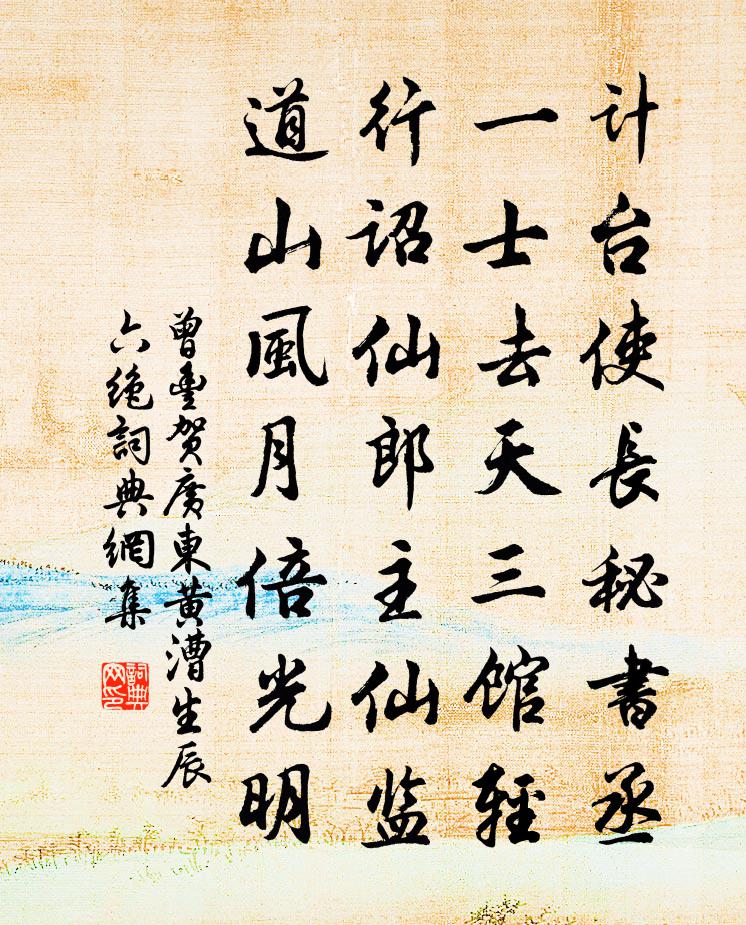 计台使長秘書丞
一士去天三馆輕
行诏仙郎主仙监
道山風月倍光明
曾豐贺廣東黄漕生辰
六絶詞典網集
詞典网印